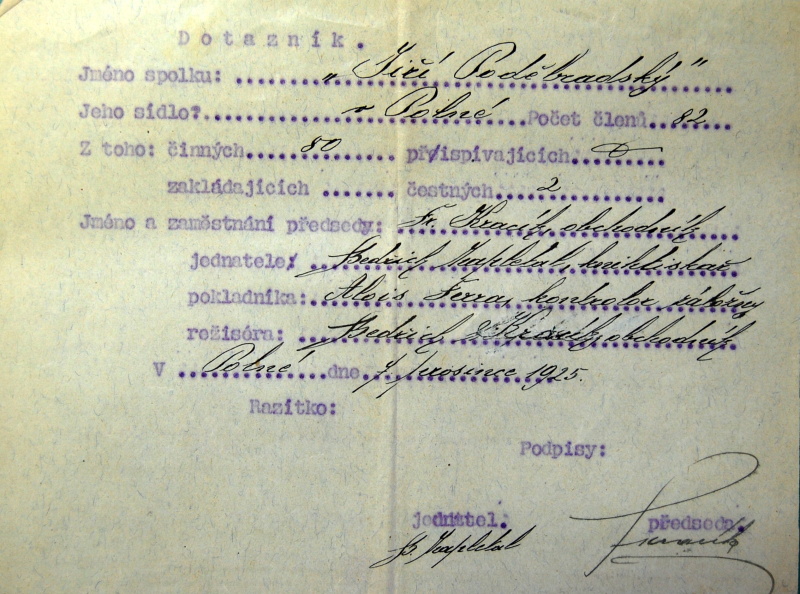 Dotazník.
Jméno spolku: „Jiří Poděbradský"
Jeho sídlo? v Polné Počet členů 82
Z toho: činných 80 přispívajících 0
zakládajících čestných 2
Jméno a zaměstnání předsedy: Fr. Kracík, obchodník
jednatele: Bedřich Zapletal, knihtiskař
pokladníka: Alois Ferra, kontrolor záložny
režiséra: Bedřich obchodník
V Polné dne 7. prosince 1925.
Razítko:
Podpisy:
jednatel. předseda.
B. Zapletal